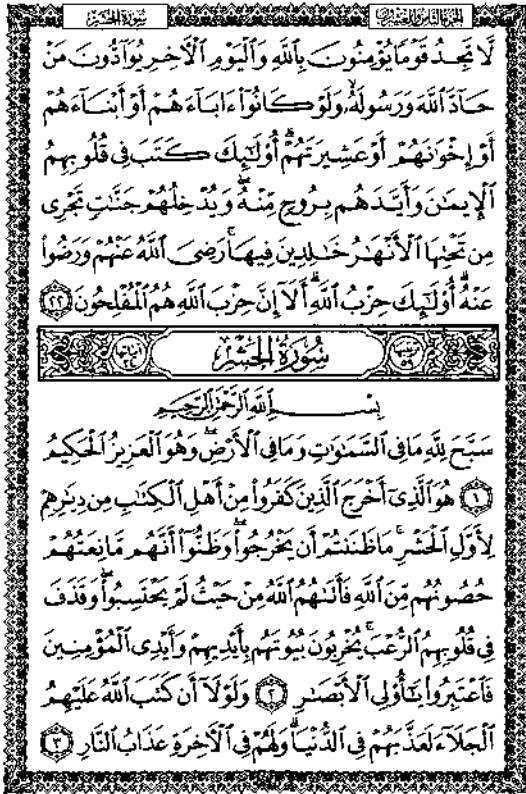 سُورَةُ الحَشْرِ
لَّا تَجِدُ قَوْمًا يُؤْمِنُونَ بِٱللَّهِ وَٱلْيَوْمِ ٱلْأَخِرِ يُوَآدُّونَ مَنْ
حَآدَّ ٱللَّهَ وَرَسُولَهُۥ وَلَوْ كَانُوٓا۟ ءَابَآءَهُمْ أَوْ أَبْنَآءَهُمْ
أَوْ إِخْوَٰنَهُمْ أَوْ عَشِيرَتَهُمْ ۚ أُو۟لَٰٓئِكَ كَتَبَ فِى قُلُوبِهِمُ
ٱلْإِيمَٰنَ وَأَيَّدَهُم بِرُوحٍ مِّنْهُ ۖ وَيُدْخِلُهُمْ جَنَّٰتٍ تَجْرِى
مِن تَحْتِهَا ٱلْأَنْهَٰرُ خَٰلِدِينَ فِيهَا ۚ رَضِىَ ٱللَّهُ عَنْهُمْ وَرَضُوا۟
عَنْهُ ۚ أُو۟لَٰٓئِكَ حِزْبُ ٱللَّهِ ۚ أَلَآ إِنَّ حِزْبَ ٱللَّهِ هُمُ ٱلْمُفْلِحُونَ ٢٢
سُورَةُ الحَشْرِ
بِسْمِ ٱللَّهِ ٱلرَّحْمَٰنِ ٱلرَّحِيمِ
سَبَّحَ لِلَّهِ مَا فِى ٱلسَّمَٰوَٰتِ وَمَا فِى ٱلْأَرْضِ ۖ وَهُوَ ٱلْعَزِيزُ ٱلْحَكِيمُ
١ هُوَ ٱلَّذِىٓ أَخْرَجَ ٱلَّذِينَ كَفَرُوا۟ مِنْ أَهْلِ ٱلْكِتَٰبِ مِن دِيَٰرِهِمْ
لِأَوَّلِ ٱلْحَشْرِ ۚ مَا ظَنَنتُمْ أَن يَخْرُجُوا۟ ۖ وَظَنُّوٓا۟ أَنَّهُم مَّانِعَتُهُمْ
حُصُونُهُم مِّنَ ٱللَّهِ فَأَتَىٰهُمُ ٱللَّهُ مِنْ حَيْثُ لَمْ يَحْتَسِبُوا۟ ۖ وَقَذَفَ
فِى قُلُوبِهِمُ ٱلرُّعْبَ ۚ يُخْرِبُونَ بُيُوتَهُم بِأَيْدِيهِمْ وَأَيْدِى ٱلْمُؤْمِنِينَ
فَٱعْتَبِرُوا۟ يَٰٓأُو۟لِى ٱلْأَبْصَٰرِ ٢ وَلَوْلَآ أَن كَتَبَ ٱللَّهُ عَلَيْهِمُ
ٱلْجَلَآءَ لَعَذَّبَهُمْ فِى ٱلدُّنْيَا ۖ وَلَهُمْ فِى ٱلْأَخِرَةِ عَذَابُ ٱلنَّارِ ٣